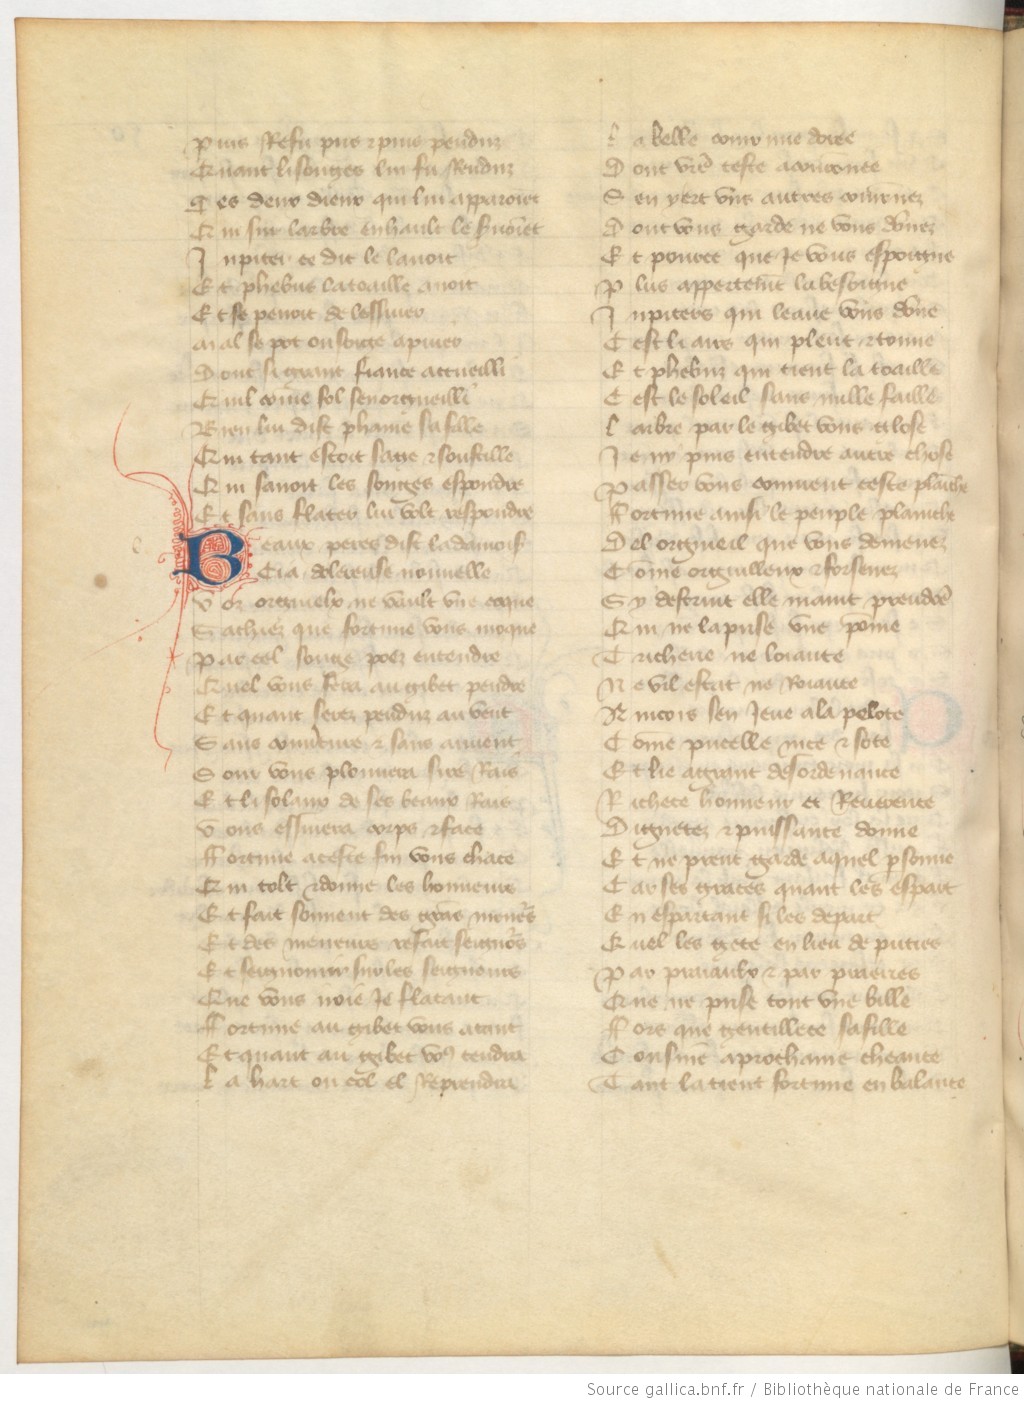 Puis Refu pris et puis penduz
Quant li songes lui fu Renduz
Ces deux dieux qui lui apparoient
Qui sur larbre enhault le
Jupiter ce dit le lauoit
Et phebus la toaille auoit
Et se penoit de lessuier
Mal se pot ou songe apuier
Dont si grant fiance accueilli
Quil come fol sen orgueilli
Bien lui dist phanie sa fille
Qui tant estoit sage et soubtille
Qui sauoit les songes espondre
Et sans flater lui volt respondre
Beaux peres dist la damois
Cy a dolereuse nouuelle
Vor orgueulx ne vault vne coque
Sachiez que fortune vous moque
Par cel songe poez entendre
Quel vous fera au gibet pendre
Et quant serez penduz au vent
Sans couuerture et sans auuent
Sour vous plouuera sire Rais
Et li solaux de ses beaux Rais
Vous essuiera corps et face
Fortune a ceste fin vous chace
Qui tolt et donne les honneurs
Et fait souuent des grans meneurs
Et des meneurs refait seigneurs
Et seignourir sur les seigneurs
Que vous iroie Je flatant
Fortune au gibet vous atent
Et quant au gibet vous tendra
La hart ou col el Reprendra
La belle couronne doree
Dont vre teste a couronee
Sen yert vns autres couronez
Dont vous garde ne vous donez
Et pource que Je vous espoigne
Plus appertement la besoigne
Jupiters qui leaue vous done
Cest li airs qui pleut et tonne
Et phebuz qui tient la toaille
Cest le soleil sans nulle faille
Larbre par le gibet vous glose
Je ny puis entendre autre chose
Passer vous conuient ceste planche
Fortune ainsi le peuple planche
Del orgueil que vous demenez
Come orguilleux et forsenez
Sy destruit elle maint prendre
Qui ne la prise vne pome
Tricherie ne loiaute
Ne vil estat ne Roiaute
Aincois sen Jeue a la pelote
Come pucelle nice et sote
Et lie a grant desordenance
Richece honneur et Reuerence
Dignetez et puissance donne
Et ne prent garde a quel psonne
Car ses graces quant les espart
En espartant si les depart
Quel les gete en lieu de putres
Par praiaulx et par praieres
Que ne prise tout vne bille
Fors que gentillece sa fille
Cousine a prochaine cheance
Tant la tient fortune en balance